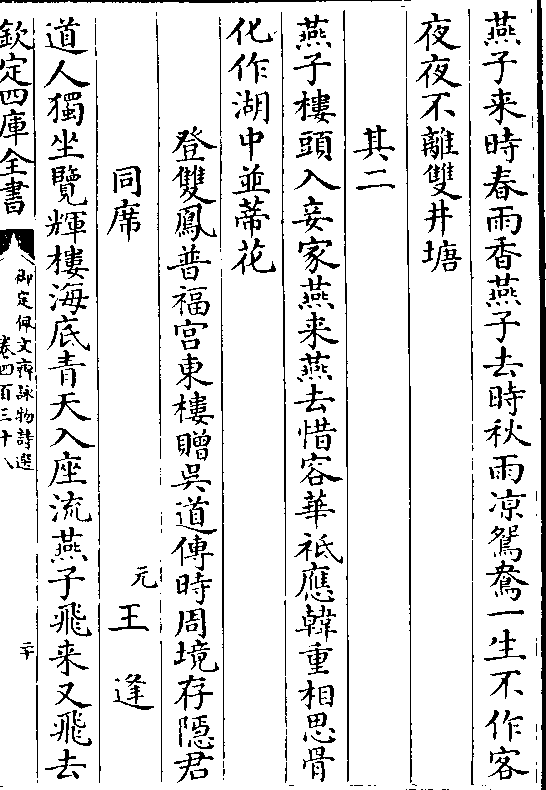 燕子来時春雨香燕子去時秋雨凉鴛鴦一生不作客
夜夜不離雙井塘
其二
燕子樓頭入妾家燕来燕去惜容華祇應韓重相思骨
化作湖中並蒂花
登雙鳳普福宫東樓贈吳道傳時周境存隱君
同席
元王逢
道人獨坐覽輝樓海底青天入座流燕子飛来又飛去
欽定四庫全書
御定佩文齋詠物詩選
卷四百三十八
二十